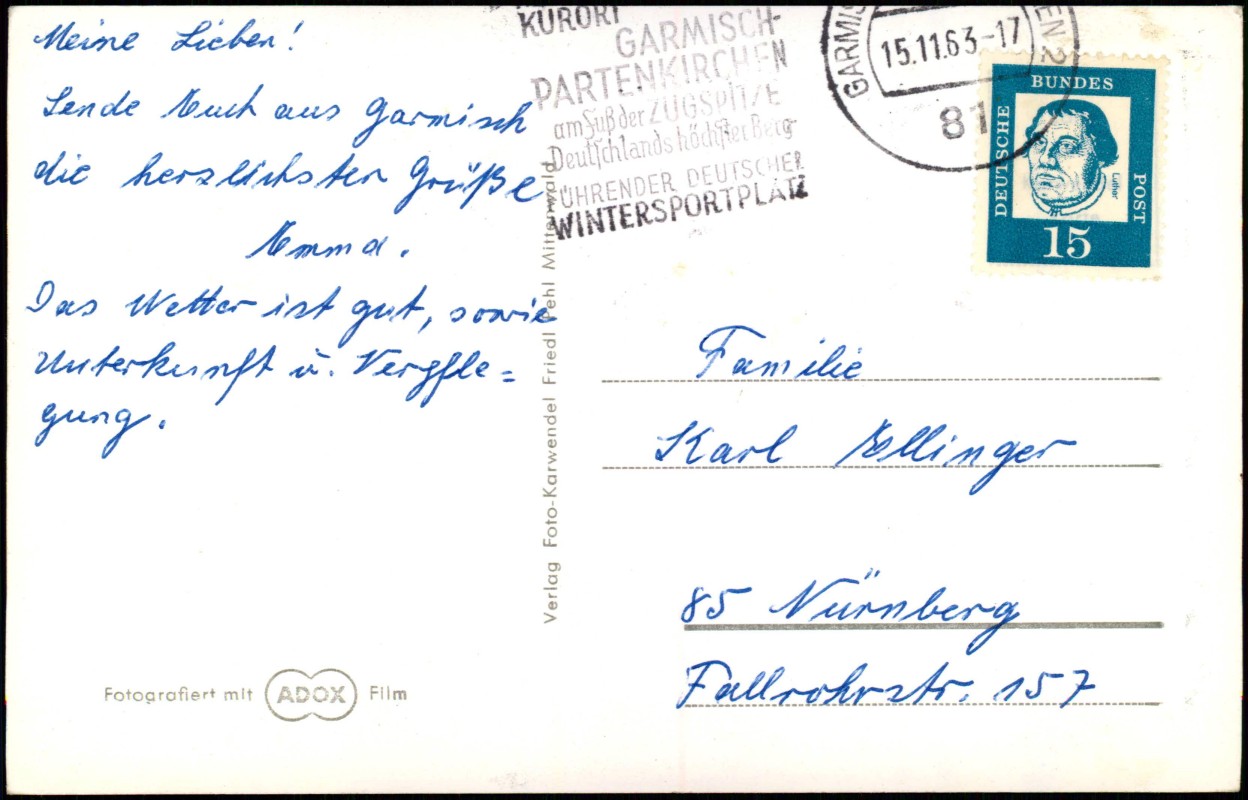 Meine Lieben!
Sende Euch aus Garmisch
die herzlichsten Grüße
Emma.
Das Wetter ist gut, sowie
Unterkunft u. Verpfle=
gung.
Fotografiert mit ADOX Film
Verlag Foto-Karwendel Friedl Pehl Mittenwald
KURORT
GARMISCH-
PARTENKIRCHEN
am Fuß der ZUGSPITZE
Deutschlands höchster Berg
FÜHRENDER DEUTSCHER
WINTERSPORTPLATZ
GARMIS
EN 2
15.11.63-17
81
DEUTSCHE
BUNDES
POST
Luther
15
Familie
Karl Ellinger
85 Nürnberg
Fallrohrstr. 157